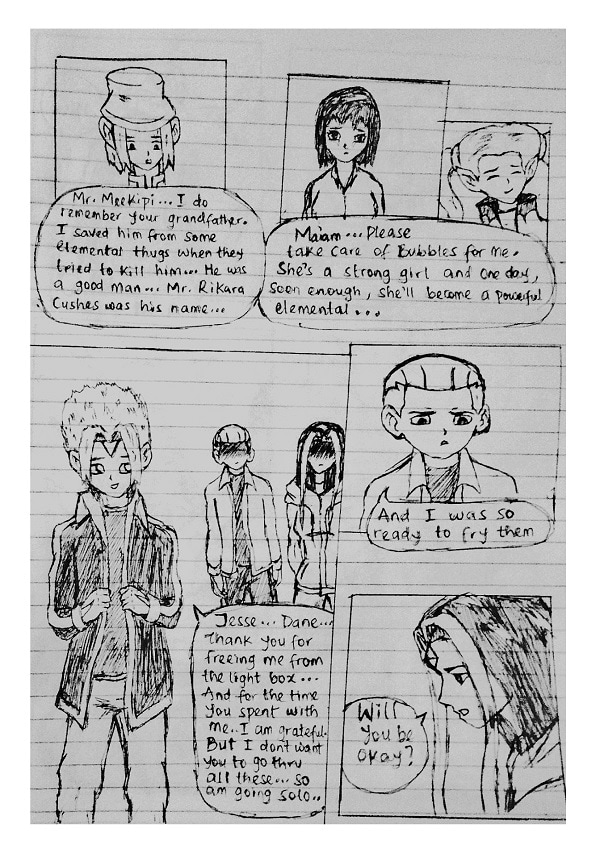 Mr. Meekipi... I do
remember your grandfather.
I saved him from some
Elemental thugs when they
tried to kill him... He was
a good man... Mr. Rikara
Cushes was his name...
Ma'am... Please
take care of Bubbles for me.
She's a strong girl and one day,
soon enough, she'll become a powerful
elemental...
And I was so
ready to fry them
Jesse... Dane...
Thank you for
freeing me from
the light box...
And for the time
you spent with
me.. I am grateful.
But I don't want
you to go thru
all these... so
am going solo..
Will
you be
okay?